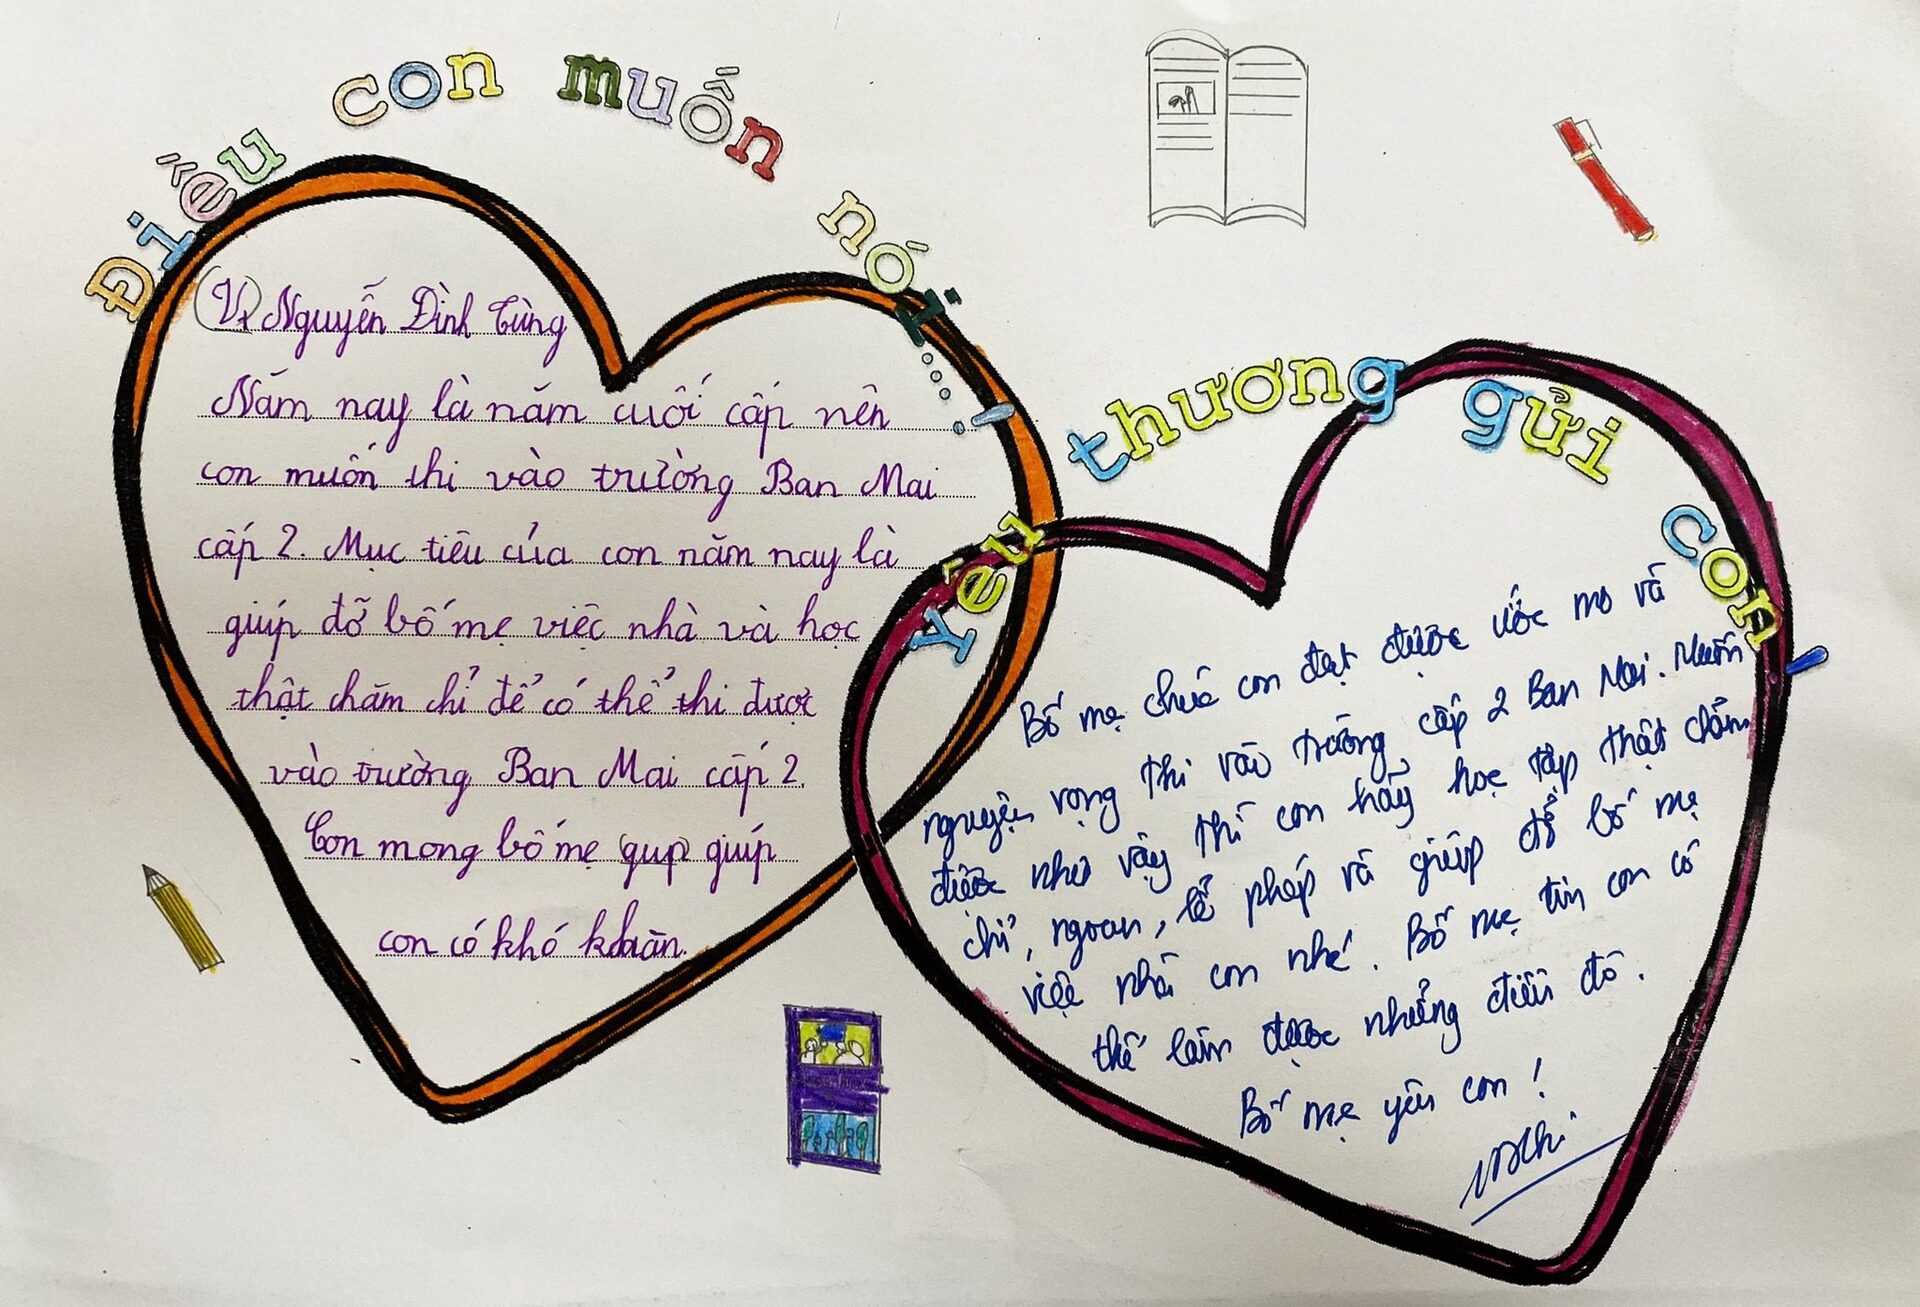 Điều con muốn nói....!
(V) Nguyễn Đình Tùng
Năm nay là năm cuối cấp nên
con muốn thi vào trường Ban Mai
cấp 2. Mục tiêu của con năm nay là
giúp đỡ bố mẹ việc nhà và học
thật chăm chỉ để có thể thi được
vào trường Ban Mai cấp 2.
Con mong bố mẹ (gup) giúp
con có khó khăn.
Yêu thương gửi con!
Bố mẹ chúc con đạt được ước mơ và
nguyện vọng thi vào trường cấp 2 Ban Mai. Muốn
được như vậy thì con hãy học tập thật chăm
chỉ, ngoan, lễ phép và giúp đỡ bố mẹ
việc nhà con nhé. Bố mẹ tin con có
thể làm được những điều đó.
Bố mẹ yêu con!